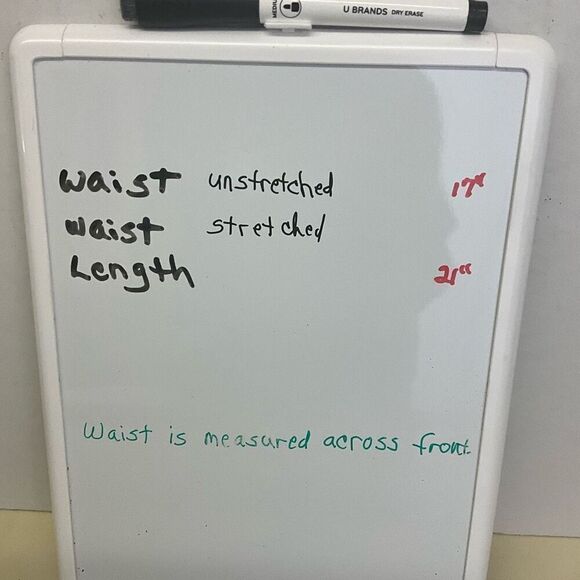 MEDIUM
U BRANDS DRY ERASE
Waist unstretched 17"
Waist stretched
Length 21"
Waist is measured across front.